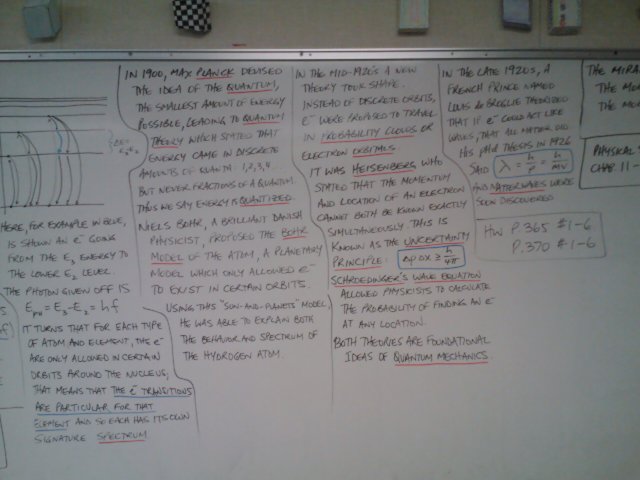 ΔE=
E3-E2
HERE, FOR EXAMPLE IN BLUE,
IS SHOWN AN e⁻ GOING
FROM THE E3 ENERGY TO
THE LOWER E2 LEVEL.
THE PHOTON GIVEN OFF IS
= E3-E2 = hf
IT TURNS THAT FOR EACH TYPE
OF ATOM AND ELEMENT, THE e⁻
ARE ONLY ALLOWED IN CERTAIN
ORBITS AROUND THE NUCLEUS,
THAT MEANS THAT THE e⁻ TRANSITIONS
ARE PARTICULAR FOR THAT
ELEMENT AND SO EACH HAS ITS OWN
SIGNATURE SPECTRUM
IN 1900, MAX PLANCK DEVISED
THE IDEA OF THE QUANTUM,
THE SMALLEST AMOUNT OF ENERGY
POSSIBLE, LEADING TO QUANTUM
THEORY WHICH STATED THAT
ENERGY CAME IN DISCRETE
AMOUNTS OF QUANTA: 1,2,3,4...
BUT NEVER FRACTIONS OF A QUANTUM.
THUS WE SAY ENERGY IS QUANTIZED.
NIELS BOHR, A BRILLIANT DANISH
PHYSICIST, PROPOSED THE BOHR
MODEL OF THE ATOM, A PLANETARY
MODEL WHICH ONLY ALLOWED e⁻
TO EXIST IN CERTAIN ORBITS.
USING THIS "SUN-AND-PLANETS" MODEL,
HE WAS ABLE TO EXPLAIN BOTH
THE BEHAVIOR AND SPECTRUM OF
THE HYDROGEN ATOM.
IN THE MID-1920'S A NEW
THEORY TOOK SHAPE.
INSTEAD OF DISCRETE ORBITS,
e⁻ WERE PROPOSED TO TRAVEL
IN PROBABILITY CLOUDS OR
ELECTRON ORBITALS.
IT WAS HEISENBERG, WHO
STATED THAT THE MOMENTUM
AND LOCATION OF AN ELECTRON
CANNOT BOTH BE KNOWN EXACTLY
SIMULTANEOUSLY. THIS IS
KNOWN AS THE UNCERTAINTY
PRINCIPLE: Δp Δx ≥ h/4π
SCHROEDINGER'S WAVE EQUATION
ALLOWED PHYSICISTS TO CALCULATE
THE PROBABILITY OF FINDING AN e⁻
AT ANY LOCATION.
BOTH THEORIES ARE FOUNDATIONAL
IDEAS OF QUANTUM MECHANICS.
IN THE LATE 1920'S, A
FRENCH PRINCE NAMED
LOUIS de BROGLIE THEORIZED
THAT IF e⁻ COULD ACT LIKE
WAVES, THAT ALL MATTER DID.
HIS PHD THESIS IN 1926
SAID λ = h/p = h/mv
AND MATTER WAVES WERE
SOON DISCOVERED
HW P.365 #1-6
P.370 #1-6
THE MIRA
THE MO
THE MO
PHYSICAL S
CHAP. 11-